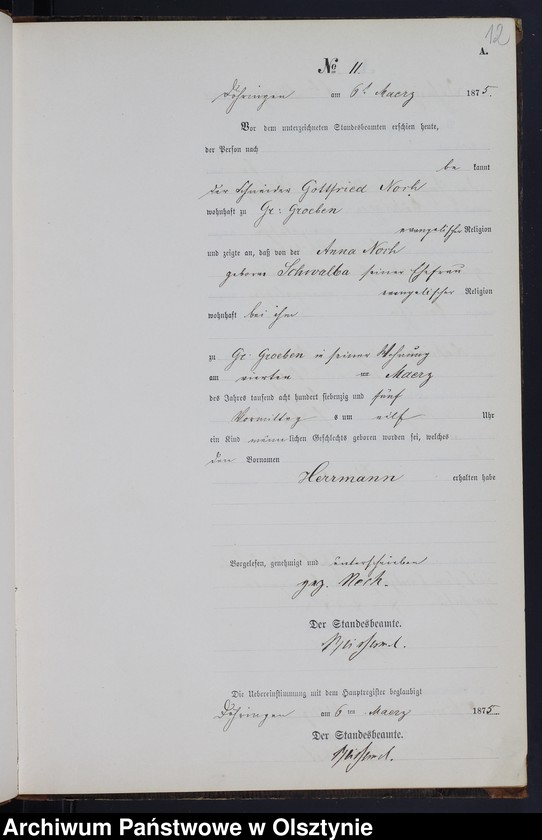 12
A.
No 11.
Döhringen am 6t Maerz 1875.
Vor dem unterzeichneten Standesbeamten erschien heute,
der Person nach
be kannt
der Schneider Gottfried Noch
wohnhaft zu Gr: Groeben
evangelischer Religion
und zeigte an, daß von der Anna Noch
geborne Schwalba seiner Ehefrau
evangelischer Religion
wohnhaft bei ihm
zu Gr: Groeben in seiner Wohnung
am vierten ten Maerz
des Jahres tausend acht hundert siebenzig und fünf
Vormittag s um eilf Uhr
ein Kind männ lichen Geschlechts geboren worden sei, welches
den Vornamen
Herrmann erhalten habe
Vorgelesen, genehmigt und unterschrieben
gez. Noch.
Der Standesbeamte.
Die Uebereinstimmung mit dem Hauptregister beglaubigt
Döhringen am 6 ten Maerz 1875
Der Standesbeamte.
Archiwum Państwowe w Olsztynie